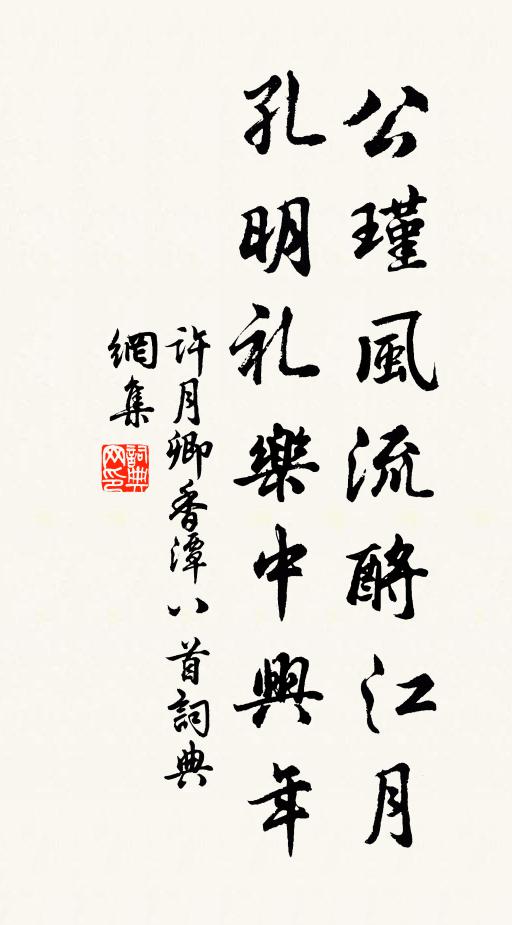 公瑾風流酹江月
孔明礼樂中興年
許月卿香潭八首詞典
網集
詞典網印